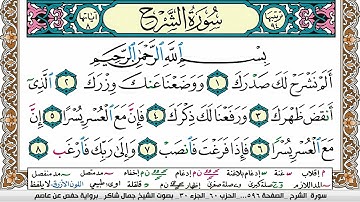 سُورَةُ الشَّرْحِ
آياتها ٨
بِسْمِ اللَّهِ الرَّحْمَٰنِ الرَّحِيمِ
أَلَمْ نَشْرَحْ لَكَ صَدْرَكَ ١ وَوَضَعْنَا عَنكَ وِزْرَكَ ٢ الَّذِي
أَنقَضَ ظَهْرَكَ ٣ وَرَفَعْنَا لَكَ ذِكْرَكَ ٤ فَإِنَّ مَعَ الْعُسْرِ يُسْرًا ٥ إِنَّ
مَعَ الْعُسْرِ يُسْرًا ٦ فَإِذَا فَرَغْتَ فَانصَبْ ٧ وَإِلَىٰ رَبِّكَ فَارْغَب ٨
سورة الشرح الصفحة ٥٩٦ الحزب ٦٠ الجزء ٣٠ بصوت الشيخ جمال شاكر برواية حفص عن عاصم